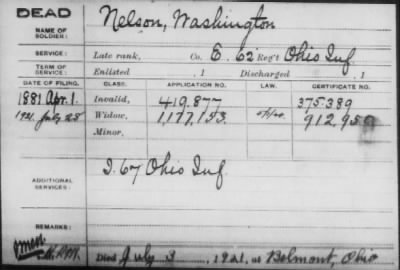 DEAD
NAME OF SOLDIER: Nelson, Washington
SERVICE: Late rank, Co. E. 62 Reg't Ohio Inf
TERM OF SERVICE: Enlisted , 1 Discharged , 1
DATE OF FILING. CLASS. APPLICATION NO. LAW. CERTIFICATE NO.
1881 Apr. 1. Invalid, 419.877 375.389
1921. July 25 Widow, 1,177,153 912,950
Minor,
ADDITIONAL SERVICES: I. 67 Ohio Inf
REMARKS:
Died July 3, 1921, at Belmont, Ohio